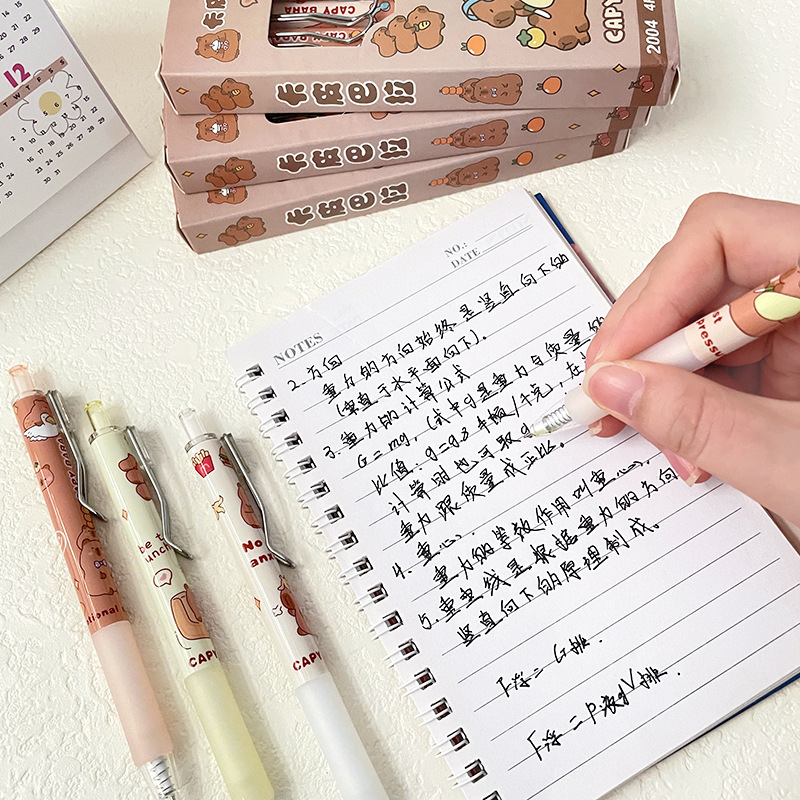 CAPY BARA
卡皮巴拉
2004
卡皮巴拉
卡皮巴拉
12
NO.:
DATE
NOTES
2. 方向
重力的方向始终是竖直向下的
(垂直于水平面向下)。
3. 重力的计算公式
G=mg, (式中g是重力与质量的
比值: g=9.8牛顿/千克, 在
计算时也可取g
重力跟质量成正比。
4. 重心:
重力的等效作用叫重心。
5. 重垂线是根据重力的方向
竖直向下的原理制成。
F浮=G排.
F浮=P液gV排.
be t
unch
CAPY
No
CAPY
st
press